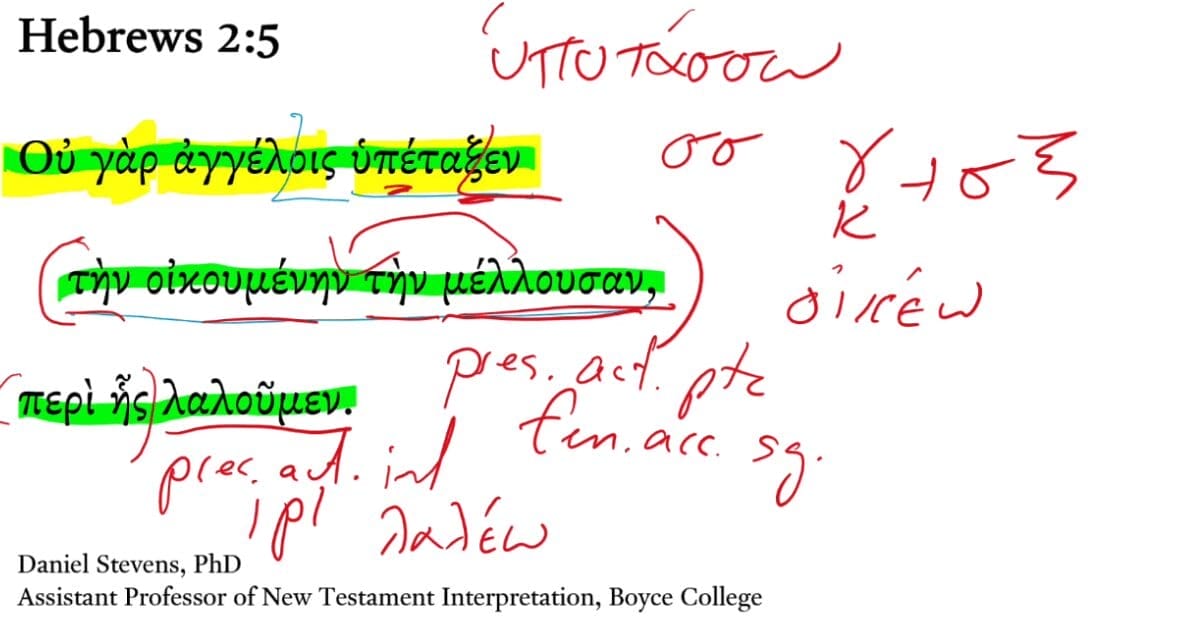 Hebrews 2:5
ὑποτάσσω
Οὐ γὰρ ἀγγέλοις ὑπέταξεν
σσ γ + σ ξ
κ
τὴν οἰκουμένην τὴν μέλλουσαν,
οἰκέω
pres. act. ptc
περὶ ἧς λαλοῦμεν.
fem. acc. sg.
pres. act. ind
1 pl λαλέω
Daniel Stevens, PhD
Assistant Professor of New Testament Interpretation, Boyce College